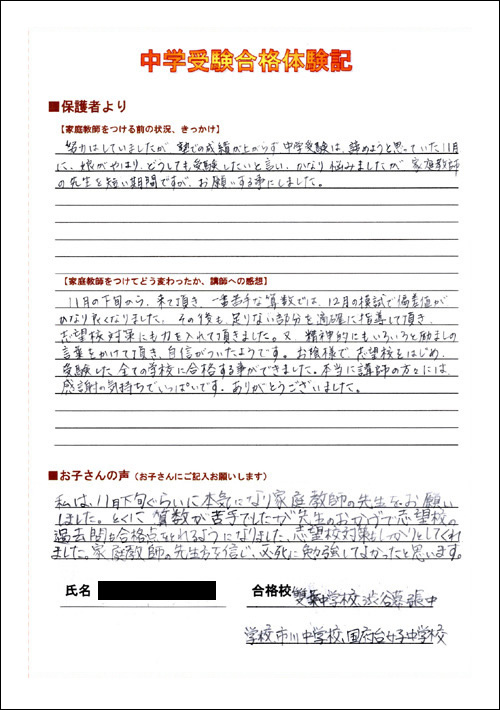 中学受験合格体験記
■保護者より
【家庭教師をつける前の状況、きっかけ】
努力はしていましたが 塾での成績が上がらず 中学受験は、諦めようと思っていた11月
に、娘がやはり、どうしても受験したいと言い、かなり悩みましたが 家庭教師
の先生を短い期間ですが、お願いする事にしました。
【家庭教師をつけてどう変わったか、講師への感想】
11月の下旬から、来て頂き、一番苦手な算数では、12月の模試で偏差値が
かなり良くなりました。その後も、足りない部分を適確に指導して頂き、
志望校対策にも力を入れて頂きました。又、精神的にもいろいろと励ましの
言葉をかけて頂き、自信がついたようです。お陰様で、志望校をはじめ、
受験した全ての学校に合格する事ができました。本当に講師の方々には、
感謝の気持ちでいっぱいです。ありがとうございました。
■お子さんの声（お子さんにご記入お願いします）
私は、11月下旬ぐらいに本気になり家庭教師の先生をお願い
しました。とくに 算数が苦手でしたが 先生のおかげで志望校の
過去問も合格点をとれるようになりました、志望校対策もしっかりとしてくれ
ました。家庭教師の先生方を信じ、必死に勉強してよかったと思います。
氏名 合格校 雙葉中学校、渋谷幕張中
学校、市川中学校、国府台女子中学校